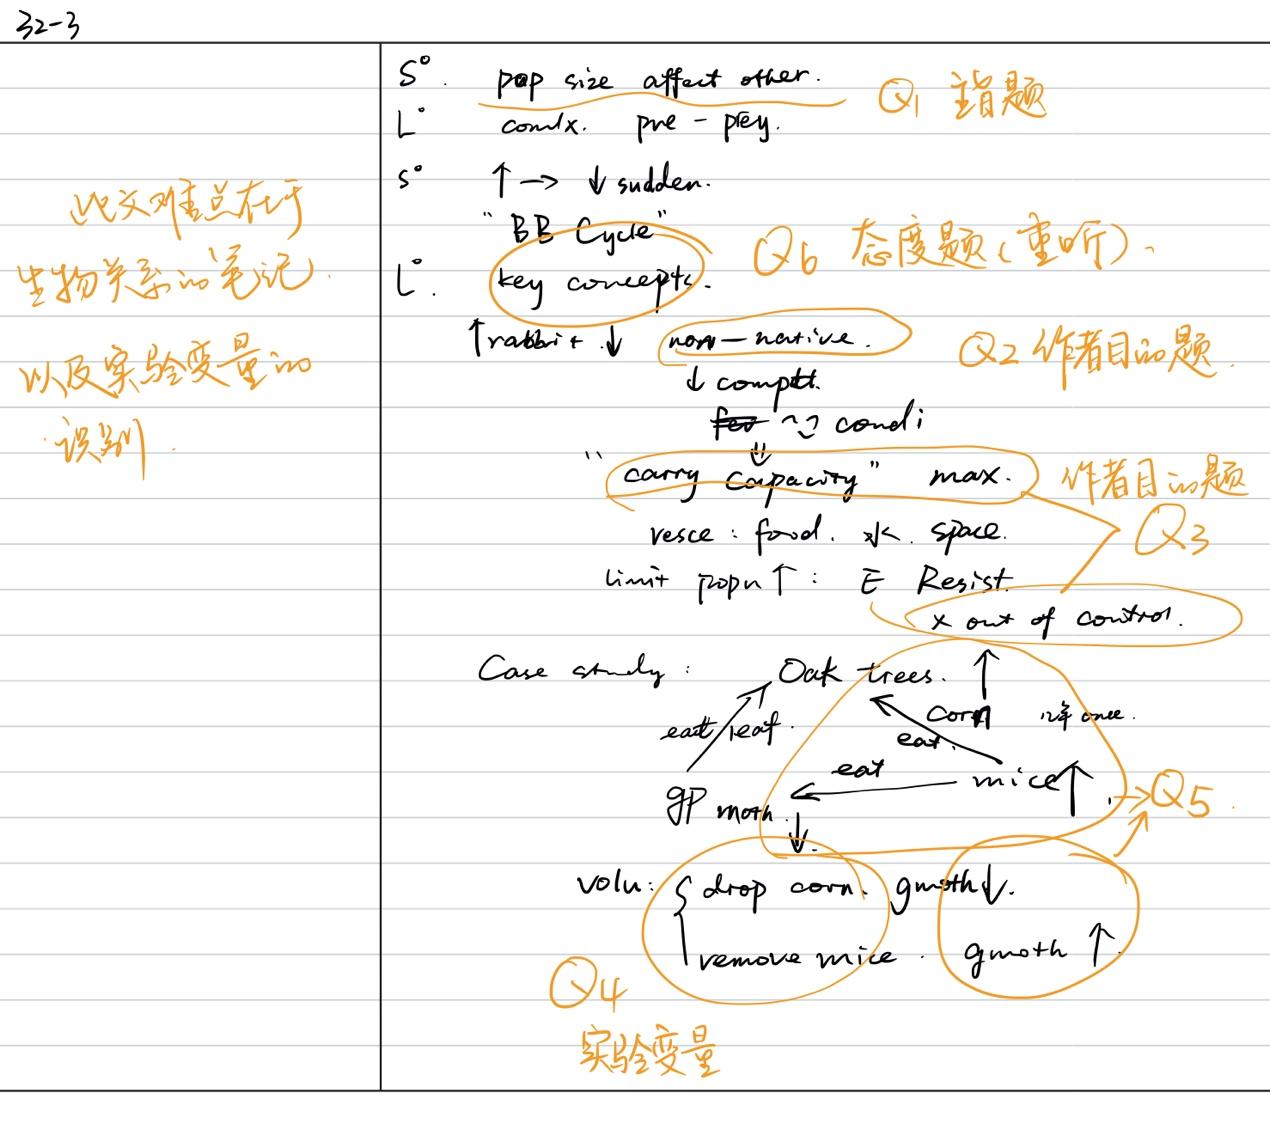 32-3
S° pop size affect other. Q1 主旨题
L° comlx. pre - prey.
S° ↑ → ↓ sudden.
"BB Cycle"
L°. key concepts. Q6 态度题(重听).
↑ rabbit ↓ non-native. Q2 作者目的题.
↓ comptt.
condi
"carry capacity" max. 作者目的题
Q3
resce: food. 水. space.
limit popn ↑: E Resist.
x out of control.
此文难点在于
生物关系的笔记.
以及实验变量的
识别.
Case study: Oak trees. ↑
corn 12年 once.
eat leaf. eat.
eat mice ↑ → Q5.
gp moth.
↓
volu: { drop corn. gmoth ↓.
remove mice. gmoth ↑.
Q4
实验变量